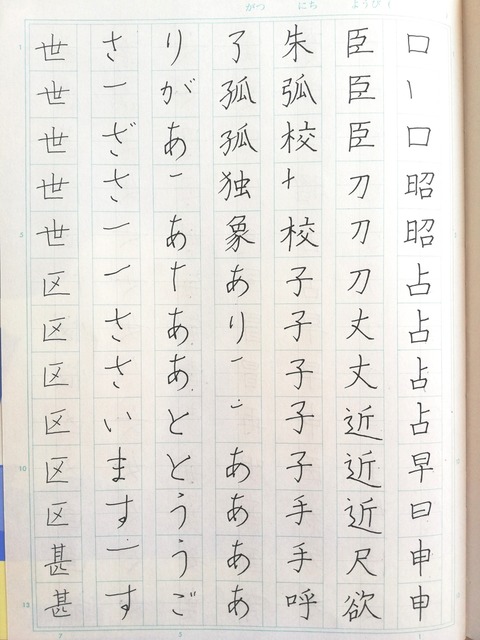 がつ にち ようび
口口昭昭占占占占早日申申
臣臣臣刀刀刀丈丈近近近尺欲
朱弧校校子子子子子手手呼
了孤孤独象ありああああ
りがあああああととううご
さ一ざさ一一ささいます一す
世世世世世区区区区区区甚甚